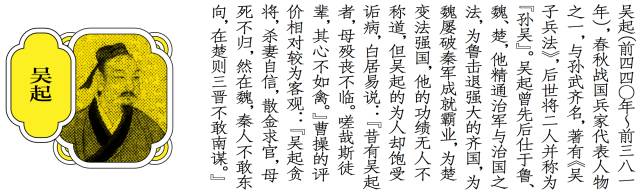 吴起(前四四〇年～前三八一
年)，春秋战国兵家代表人物
之一，与孙武齐名，著有《吴
子兵法》，后世将二人并称为
『孙吴』。吴起曾先后仕于鲁、
魏、楚，他精通治军与治国之
法，为鲁击退强大的齐国，为
魏屡破秦军成就霸业，为楚
变法强国，他的功绩无人不
称道，但吴起的为人却饱受
诟病，白居易说：『昔有吴起
者，母殁丧不临。嗟哉斯徒
辈，其心不如禽。』曹操的评
价相对较为客观：『吴起贪
将，杀妻自信，散金求官，母
死不归，然在魏，秦人不敢东
向，在楚则三晋不敢南谋。』
吴起